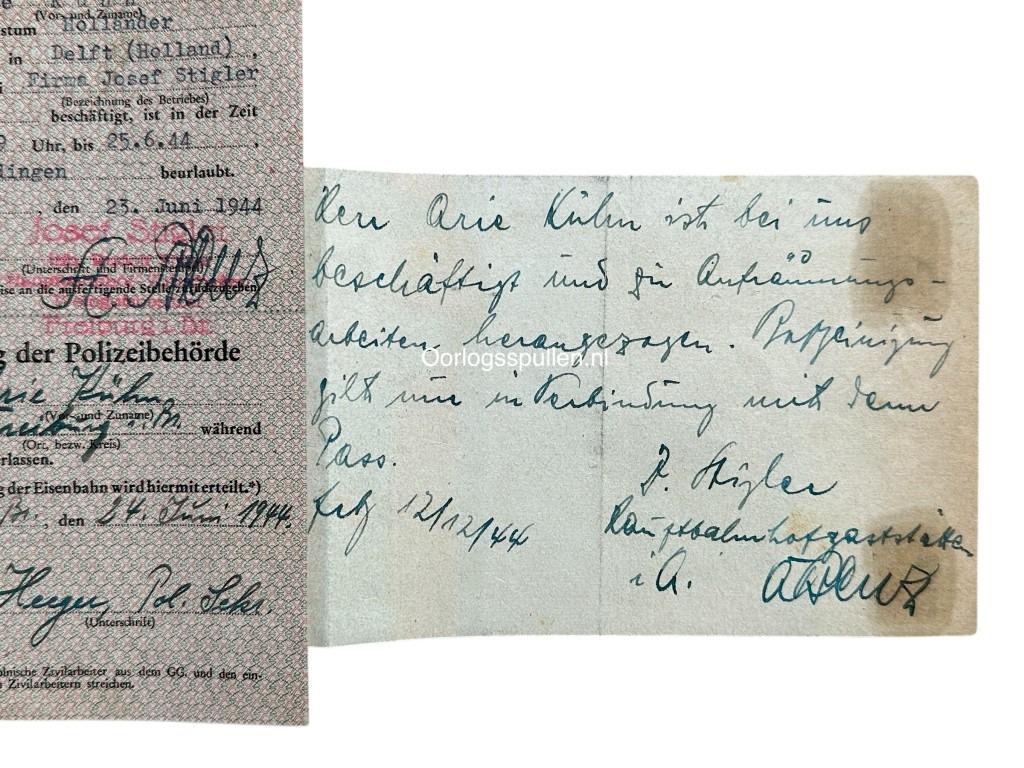 e Kühn
(Vor- und Zuname)
stum Holländer
in Delft (Holland) ,
i Firma Josef Stigler
(Bezeichnung des Betriebes)
beschäftigt, ist in der Zeit
9 Uhr, bis 25.6.44 ,
lingen beurlaubt.
, den 23. Juni 1944
Josef Stigler
(Unterschrift und Firmenstempel)
ise an die ausfertigende Stelle zurückzugeben
Freiburg i. Br.
g der Polizeibehörde
rie Kühn
(Vor- und Zuname)
reiburg i. Br. während
(Ort, bezw. Kreis)
erlassen.
g der Eisenbahn wird hiermit erteilt.*)
Br., den 24. Juni 1944.
Pol. Sekr.
(Unterschrift)
olnische Zivilarbeiter aus dem GG. und den ein-
n Zivilarbeitern streichen.
Herr Arie Kühn ist bei uns
beschäftigt und zu Aufräumungs-
arbeiten herangezogen.
gilt nur in Verbindung mit dem
Pass.
12/12/44
J. Stigler
Hauptbahnhofgaststätten
i A.
Oorlogsspullen.nl